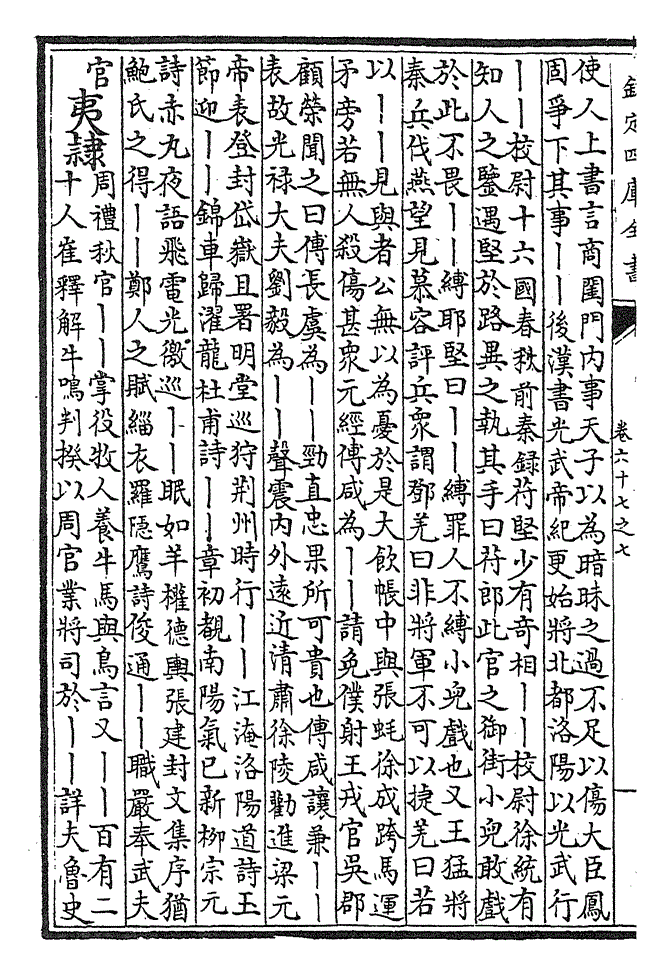 欽定四庫全書
卷六十七之七
使人上書言商閨門内事天子以為暗昧之過不足以傷大臣鳳
固爭下其事丨丨後漢書光武帝紀更始將北都洛陽以光武行
丨丨校尉十六國春秋前秦録苻堅少有奇相丨丨校尉徐統有
知人之鑒遇堅於路異之執其手曰苻郎此官之御街小兒敢戲
於此不畏丨丨縛耶堅曰丨丨縛罪人不縛小兒戲也又王猛將
秦兵伐燕望見慕容評兵衆謂鄧羌曰非將軍不可以捷羌曰若
以丨丨見與者公無以為憂於是大飲帳中與張蚝徐成跨馬運
矛旁若無人殺傷甚衆元經傅咸為丨丨請免僕射王戎官吳郡
顧榮聞之曰傅長虞為丨丨勁直忠果所可貴也傅咸讓兼丨丨
表故光禄大夫劉毅為丨丨聲震内外遠近清肅徐陵勸進梁元
帝表登封岱嶽且署明堂巡狩荆州時行丨丨江淹洛陽道詩玉
節迎丨丨錦車歸濯龍杜甫詩丨丨章初覩南陽氣已新柳宗元
詩赤丸夜語飛電光徼巡丨丨眠如羊權德輿張建封文集序猶
鮑氏之得丨丨鄭人之賦緇衣羅隱鷹詩俊通丨丨職嚴奉武夫
官
夷隷
周禮秋官丨丨掌役牧人養牛馬與鳥言又丨丨百有二
十人崔釋解牛鳴判揆以周官業將司於丨丨詳夫魯史